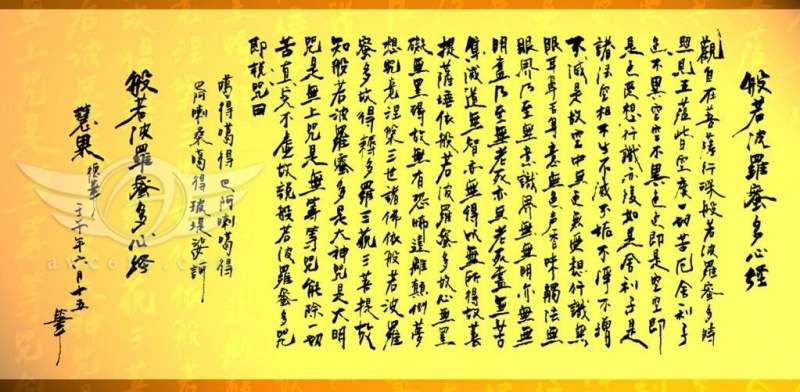 般若波羅蜜多心經
觀自在菩薩行深般若波羅蜜多時
照見五蘊皆空度一切苦厄舍利子
色不異空空不異色色即是空空即
是色受想行識亦復如是舍利子是
諸法空相不生不滅不垢不淨不增
不減是故空中無色無受想行識無
眼耳鼻舌身意無色聲香味觸法無
眼界乃至無意識界無無明亦無無
明盡乃至無老死亦無老死盡無苦
集滅道無智亦無得以無所得故菩
提薩埵依般若波羅蜜多故心無罣
礙無罣礙故無有恐怖遠離顛倒夢
想究竟涅槃三世諸佛依般若波羅
蜜多故得耨多羅三藐三菩提故
知般若波羅蜜多是大神咒是大明
咒是無上咒是無等等咒能除一切
苦真實不虛故說般若波羅蜜多咒
即說咒曰
噶得噶得 巴阿喇噶得
巴阿喇桑噶得 玻堤娑訶
般若波羅蜜多心經
慧果
年六月十五